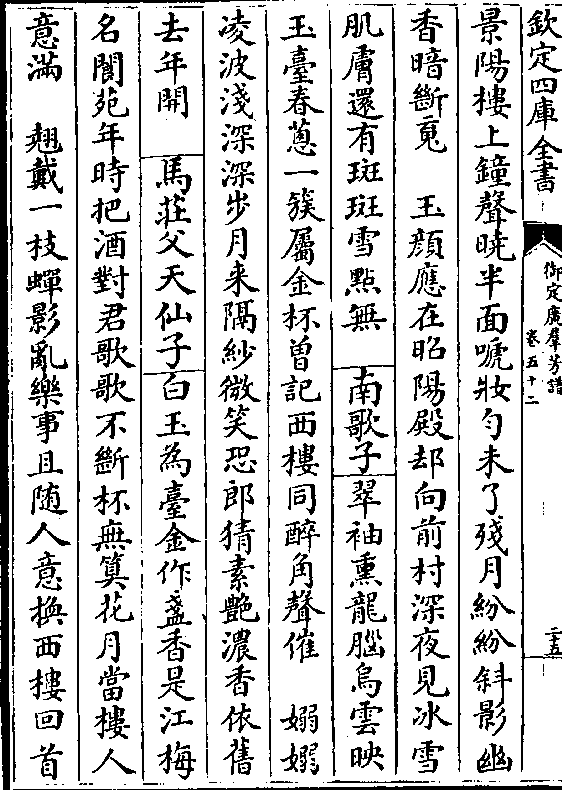 欽定四庫全書
御定廣羣芳譜
卷五十二
二十五
景陽樓上鐘聲曉半面啼妝勻未了殘月紛紛斜影幽
香暗斷䰟　玉顔應在昭陽殿却向前村深夜見冰雪
肌膚還有斑斑雪點無　南歌子翠袖熏龍腦烏雲映
玉臺春蔥一簇屬金杯曽記西樓同醉角聲催　嫋嫋
凌波淺深深步月来隔紗微笑恐郎猜素艷濃香依舊
去年開　馬莊父天仙子白玉為臺金作盞香是江梅
名閬苑年時把酒對君歌歌不斷杯無筭花月當樓人
意滿　翹戴一枝蟬影亂樂事且随人意換西樓回首